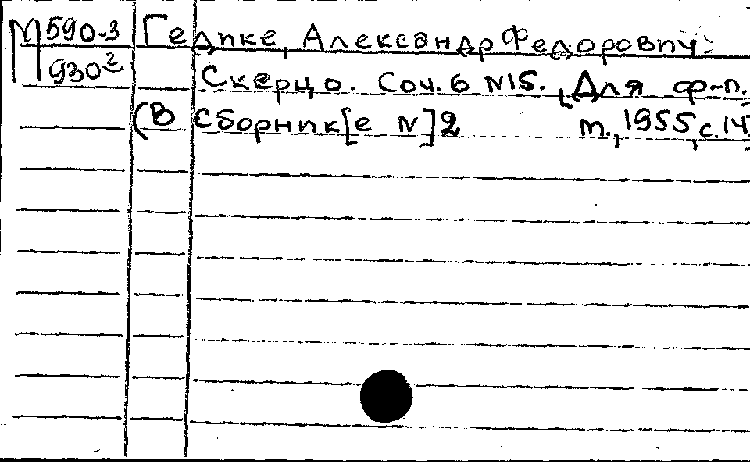 М 590-3 Гедике, Александр Федорович:
930² Скерцо. Соч. 6 N15. [Для ф-п.
(В сборник[е N] 2 М., 1955, с. 14